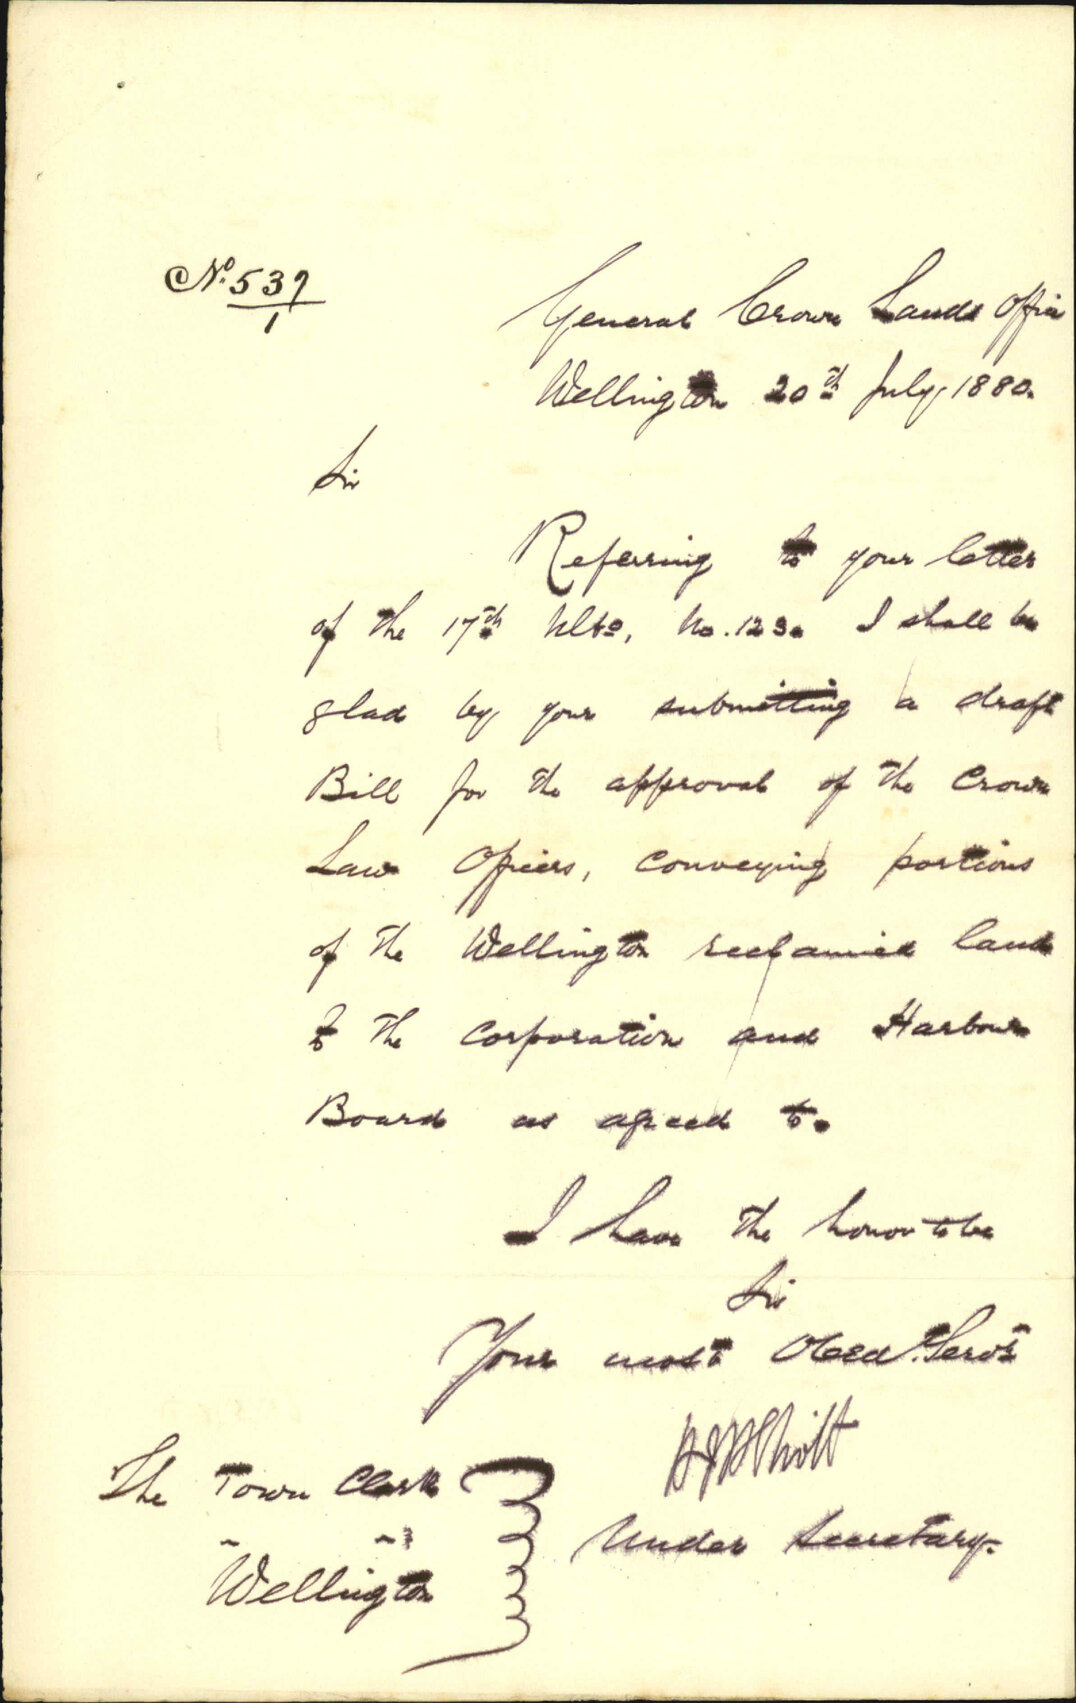 No. 537
1
General Crown Lands Office
Wellington 20th July, 1880.
Sir
Referring to your letter
of the 17th Ulto, No. 123. I shall be
glad by your submitting a draft
Bill for the approval of the Crown
Law Officers, conveying portions
of the Wellington reclaimed land
to the Corporation and Harbour
Board as agreed to.
I have the honor to be
Sir
Your most Obed. Servt
Under Secretary.
The Town Clerk
Wellington